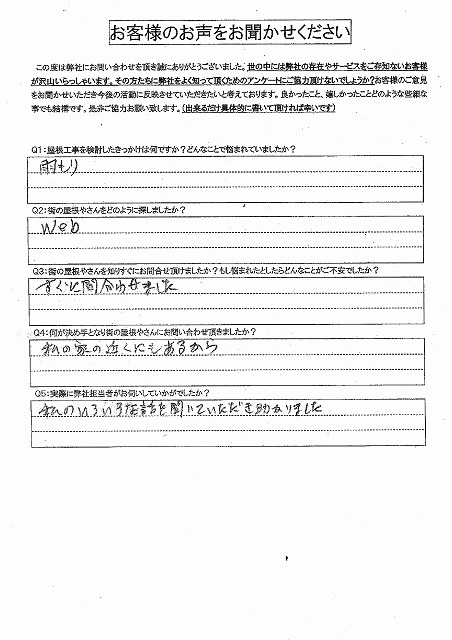 お客様のお声をお聞かせください
この度は弊社にお問い合わせを頂き誠にありがとうございました。世の中には弊社の存在やサービスをご存知ないお客様
が沢山いらっしゃいます。その方たちに弊社をよく知って頂くためのアンケートにご協力頂けないでしょうか?お客様のご意見
をお聞かせいただき今後の活動に反映させていただきたいと考えております。良かったこと、嬉しかったことどのような些細な
事でも結構です。是非ご協力お願い致します。(出来るだけ具体的に書いて頂ければ幸いです)
Q1:屋根工事を検討したきっかけは何ですか?どんなことで悩まれていましたか?
雨もり
Q2:街の屋根やさんをどのように探しましたか?
Web
Q3:街の屋根やさんを知りすぐにお問合せ頂けましたか?もし悩まれたとしたらどんなことがご不安でしたか?
すぐと問合わせました
Q4:何が決め手となり街の屋根やさんにお問い合わせ頂きましたか?
私の家の近くにもあるから
Q5:実際に弊社担当者がお伺いしていかがでしたか?
私のいろいろな話を聞いていただき助かりました